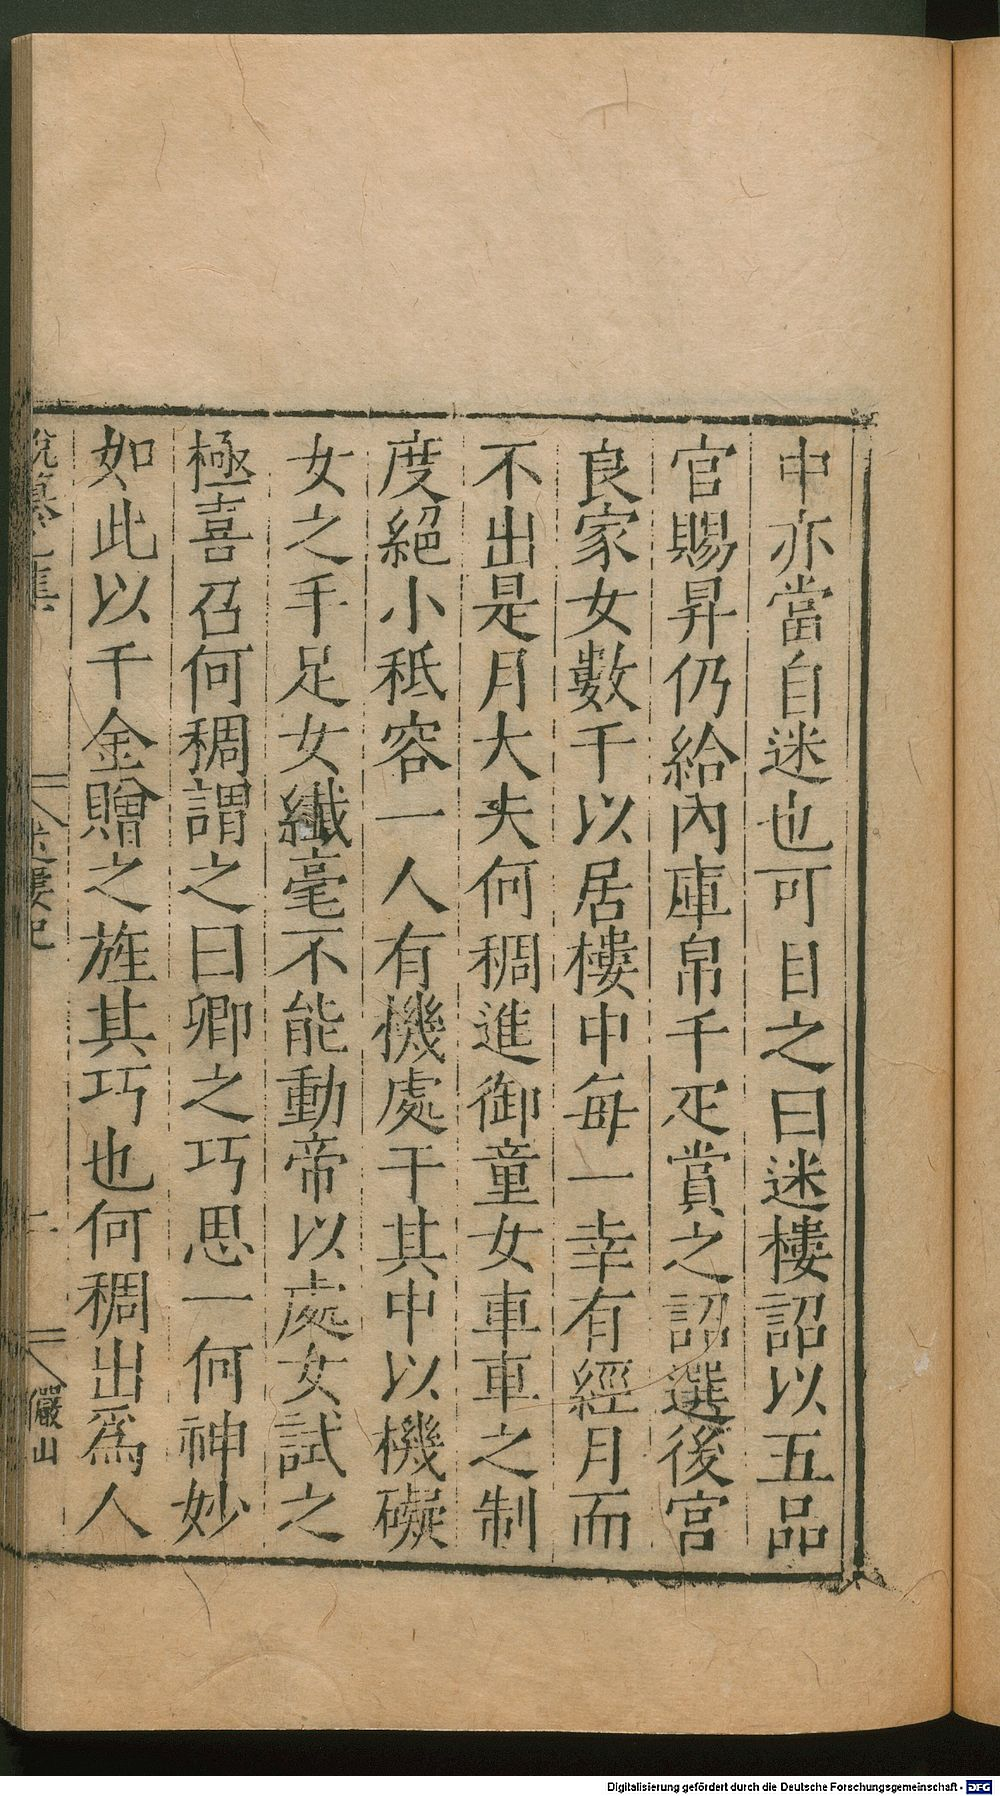 中亦當自迷也可目之曰迷樓詔以五品
官賜昇仍給內庫帛千疋賞之詔選後宮
良家女數千以居樓中每一幸有經月而
不出是月大夫何稠進御童女車車之制
度絕小秪容一人有機處于其中以機礙
女之手足女纖毫不能動帝以處女試之
極喜召何稠謂之曰卿之巧思一何神妙
如此以千金贈之旌其巧也何稠出爲人
儼山
Digitalisierung gefördert durch die Deutsche Forschungsgemeinschaft - DFG